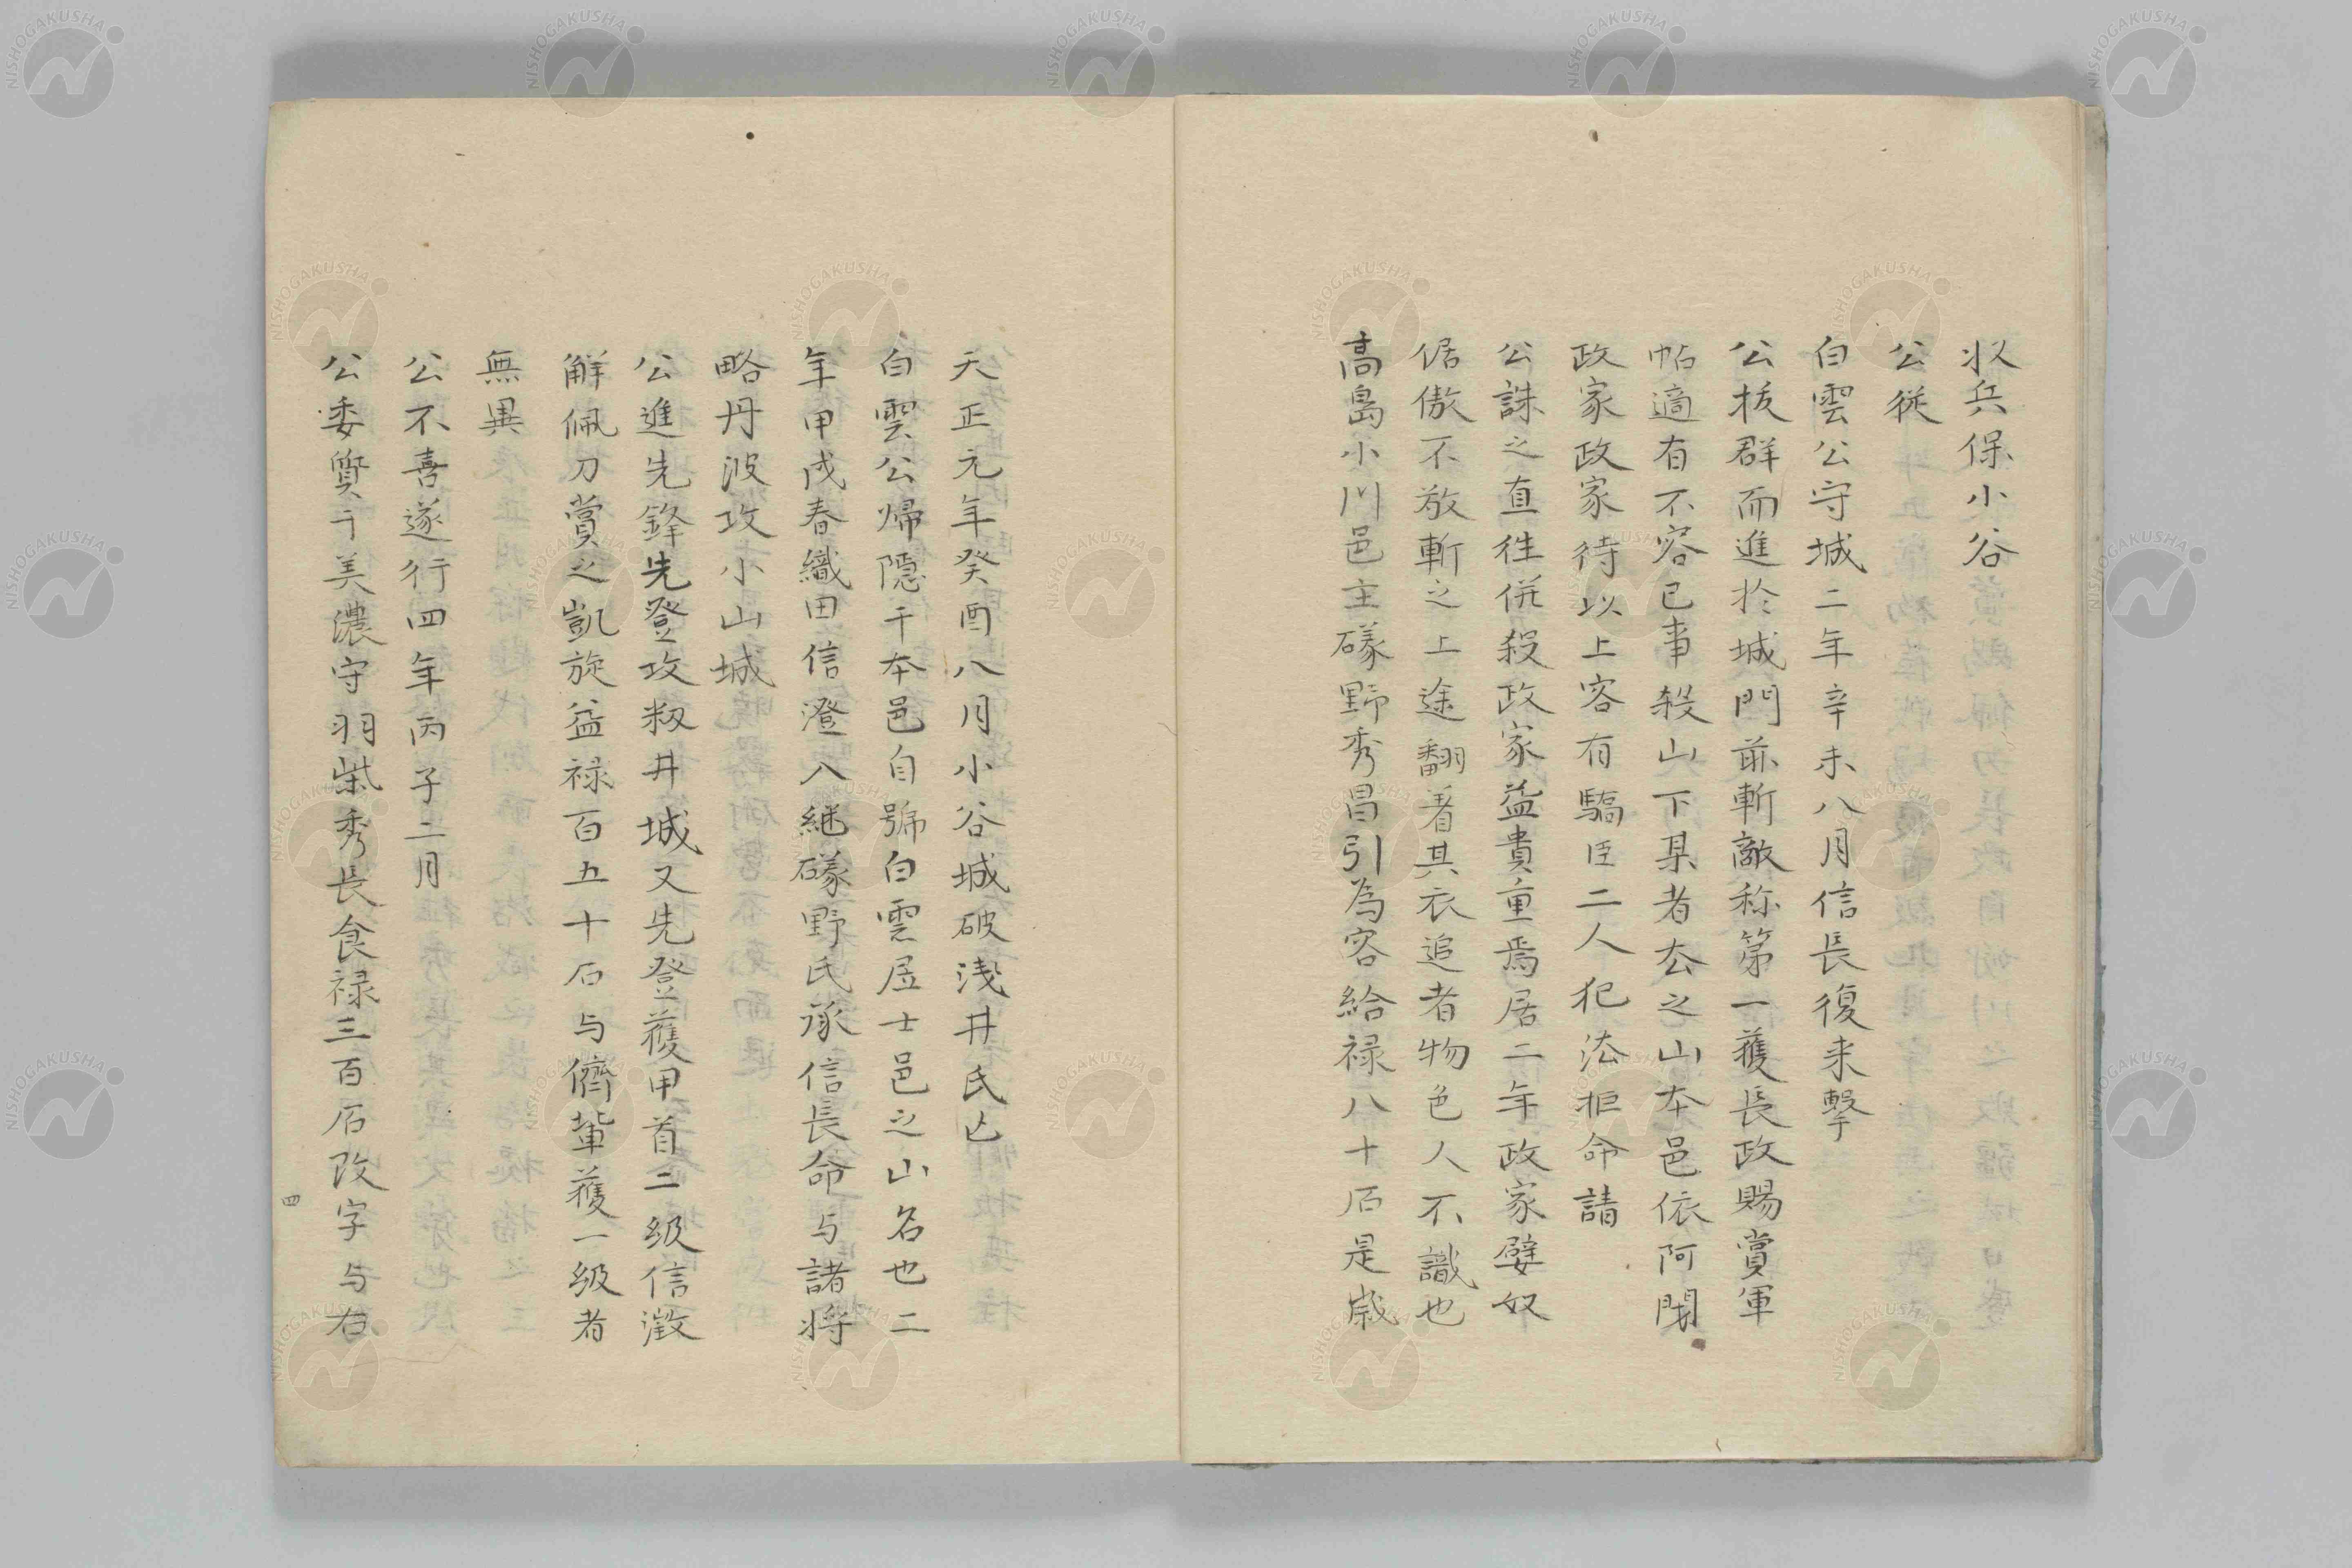 収兵保小谷
公従
白雲公守城二年辛未八月信長復来撃
公抜群而進於城門前斬敵称第一獲長政賜賞軍
帖適有不容已事殺山下某者去之山本邑依阿閉
政家政家待以上客有驕臣二人犯法拒命請
公誅之直往併殺政家益貴重焉居二年政家嬖奴
倨傲不敬斬之上途翻着其衣追者物色人不識也
高島小川邑主礒野秀昌引為客給禄八十石是歳
天正元年癸酉八月小谷城破浅井氏亡
白雲公帰隠于本邑自號白雲居士邑之山名也二
年甲戌春織田信澄入継礒野氏承信長命与諸将
略丹波攻小山城
公進先鋒先登攻籾井城又先登獲甲首二級信澂
解佩刀賞之凱旋益禄百五十石与儕輩獲一級者
無異
公不喜遂行四年丙子二月
公委質于美濃守羽柴秀長食禄三百石改字与右
四
NISHOGAKUSHA